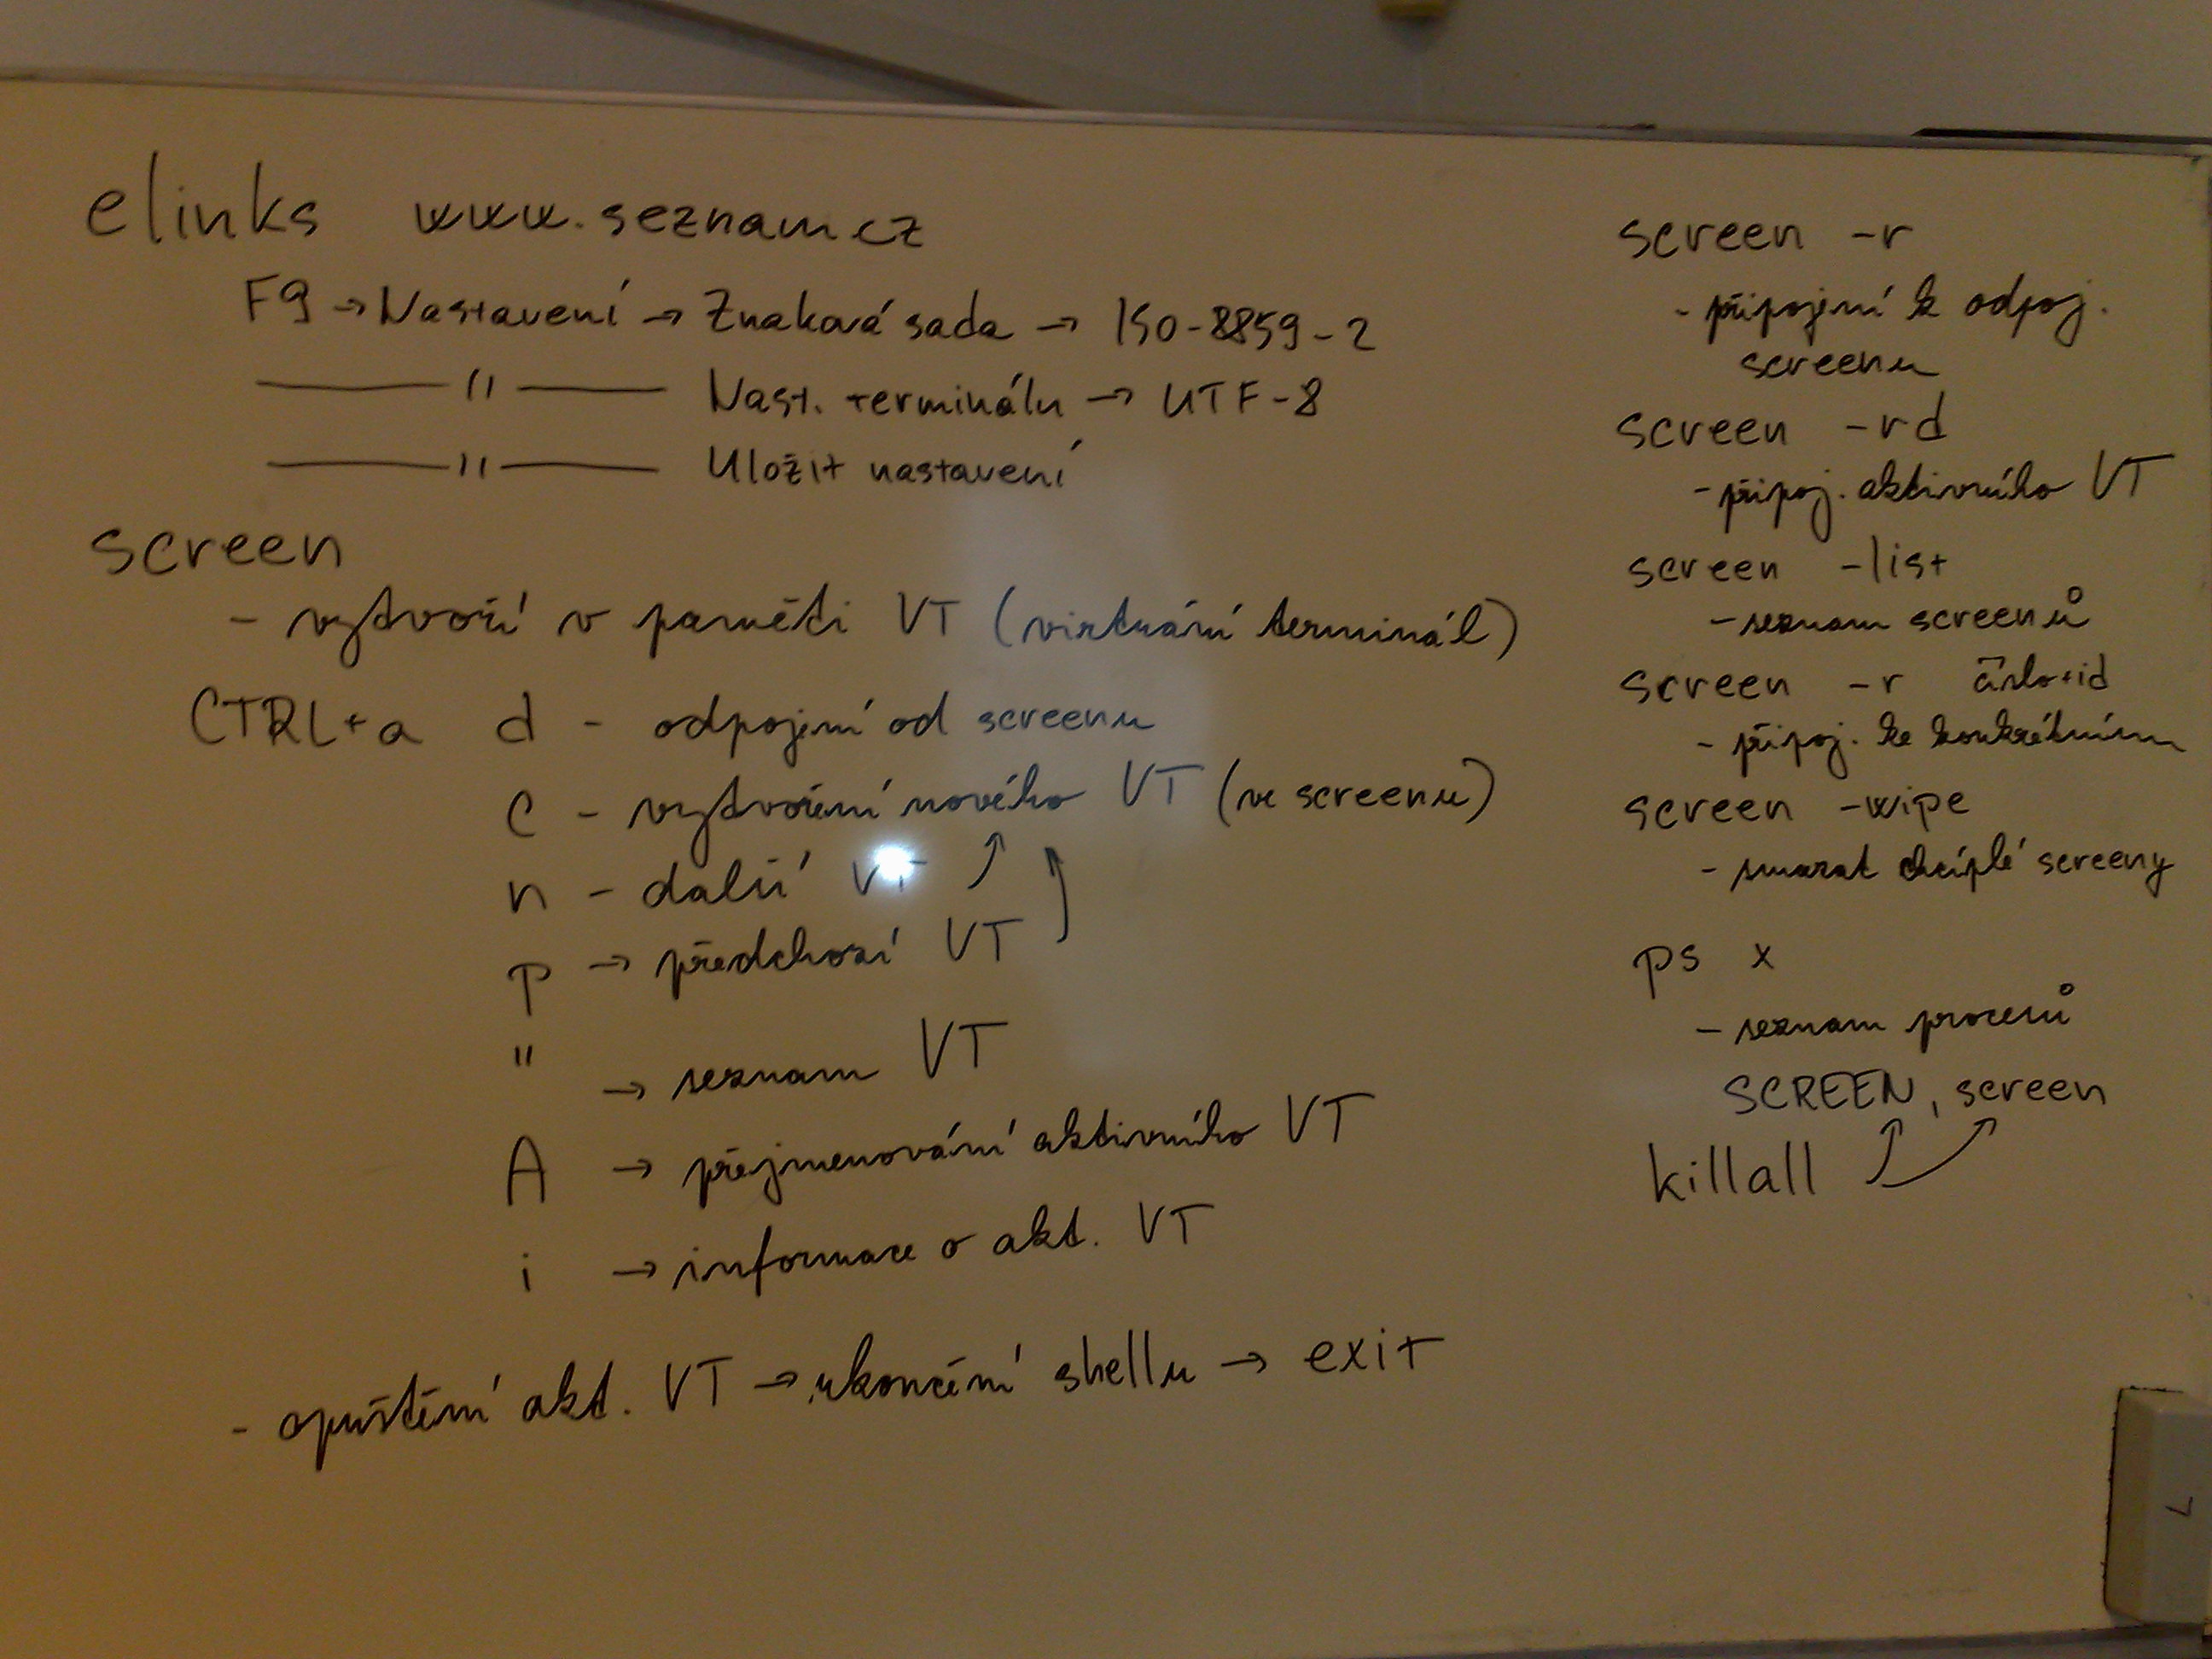 elinks www.seznam.cz
F9 → Nastavení → Znaková sada → ISO-8859-2
—— " —— Nast. terminálu → UTF-8
—— " —— Uložit nastavení
screen
- vytvoří v paměti VT (virtuání terminál)
CTRL+a d - odpojení od screenu
c - vytvoření nového VT (ve screenu)
n - další VT ↑
p → předchozí VT ↑
" → seznam VT
A → přejmenování aktivního VT
i → informace o akt. VT
- opuštění akt. VT → ukončení shellu → exit
screen -r
- připojení k odpoj.
screenu
screen -rd
- připoj. aktivního VT
screen -list
- seznam screenů
screen -r číslo+id
- připoj. ke konkrétnímu
screen -wipe
- smazat chcíplé screeny
ps x
- seznam procesů
SCREEN, screen
killall
L